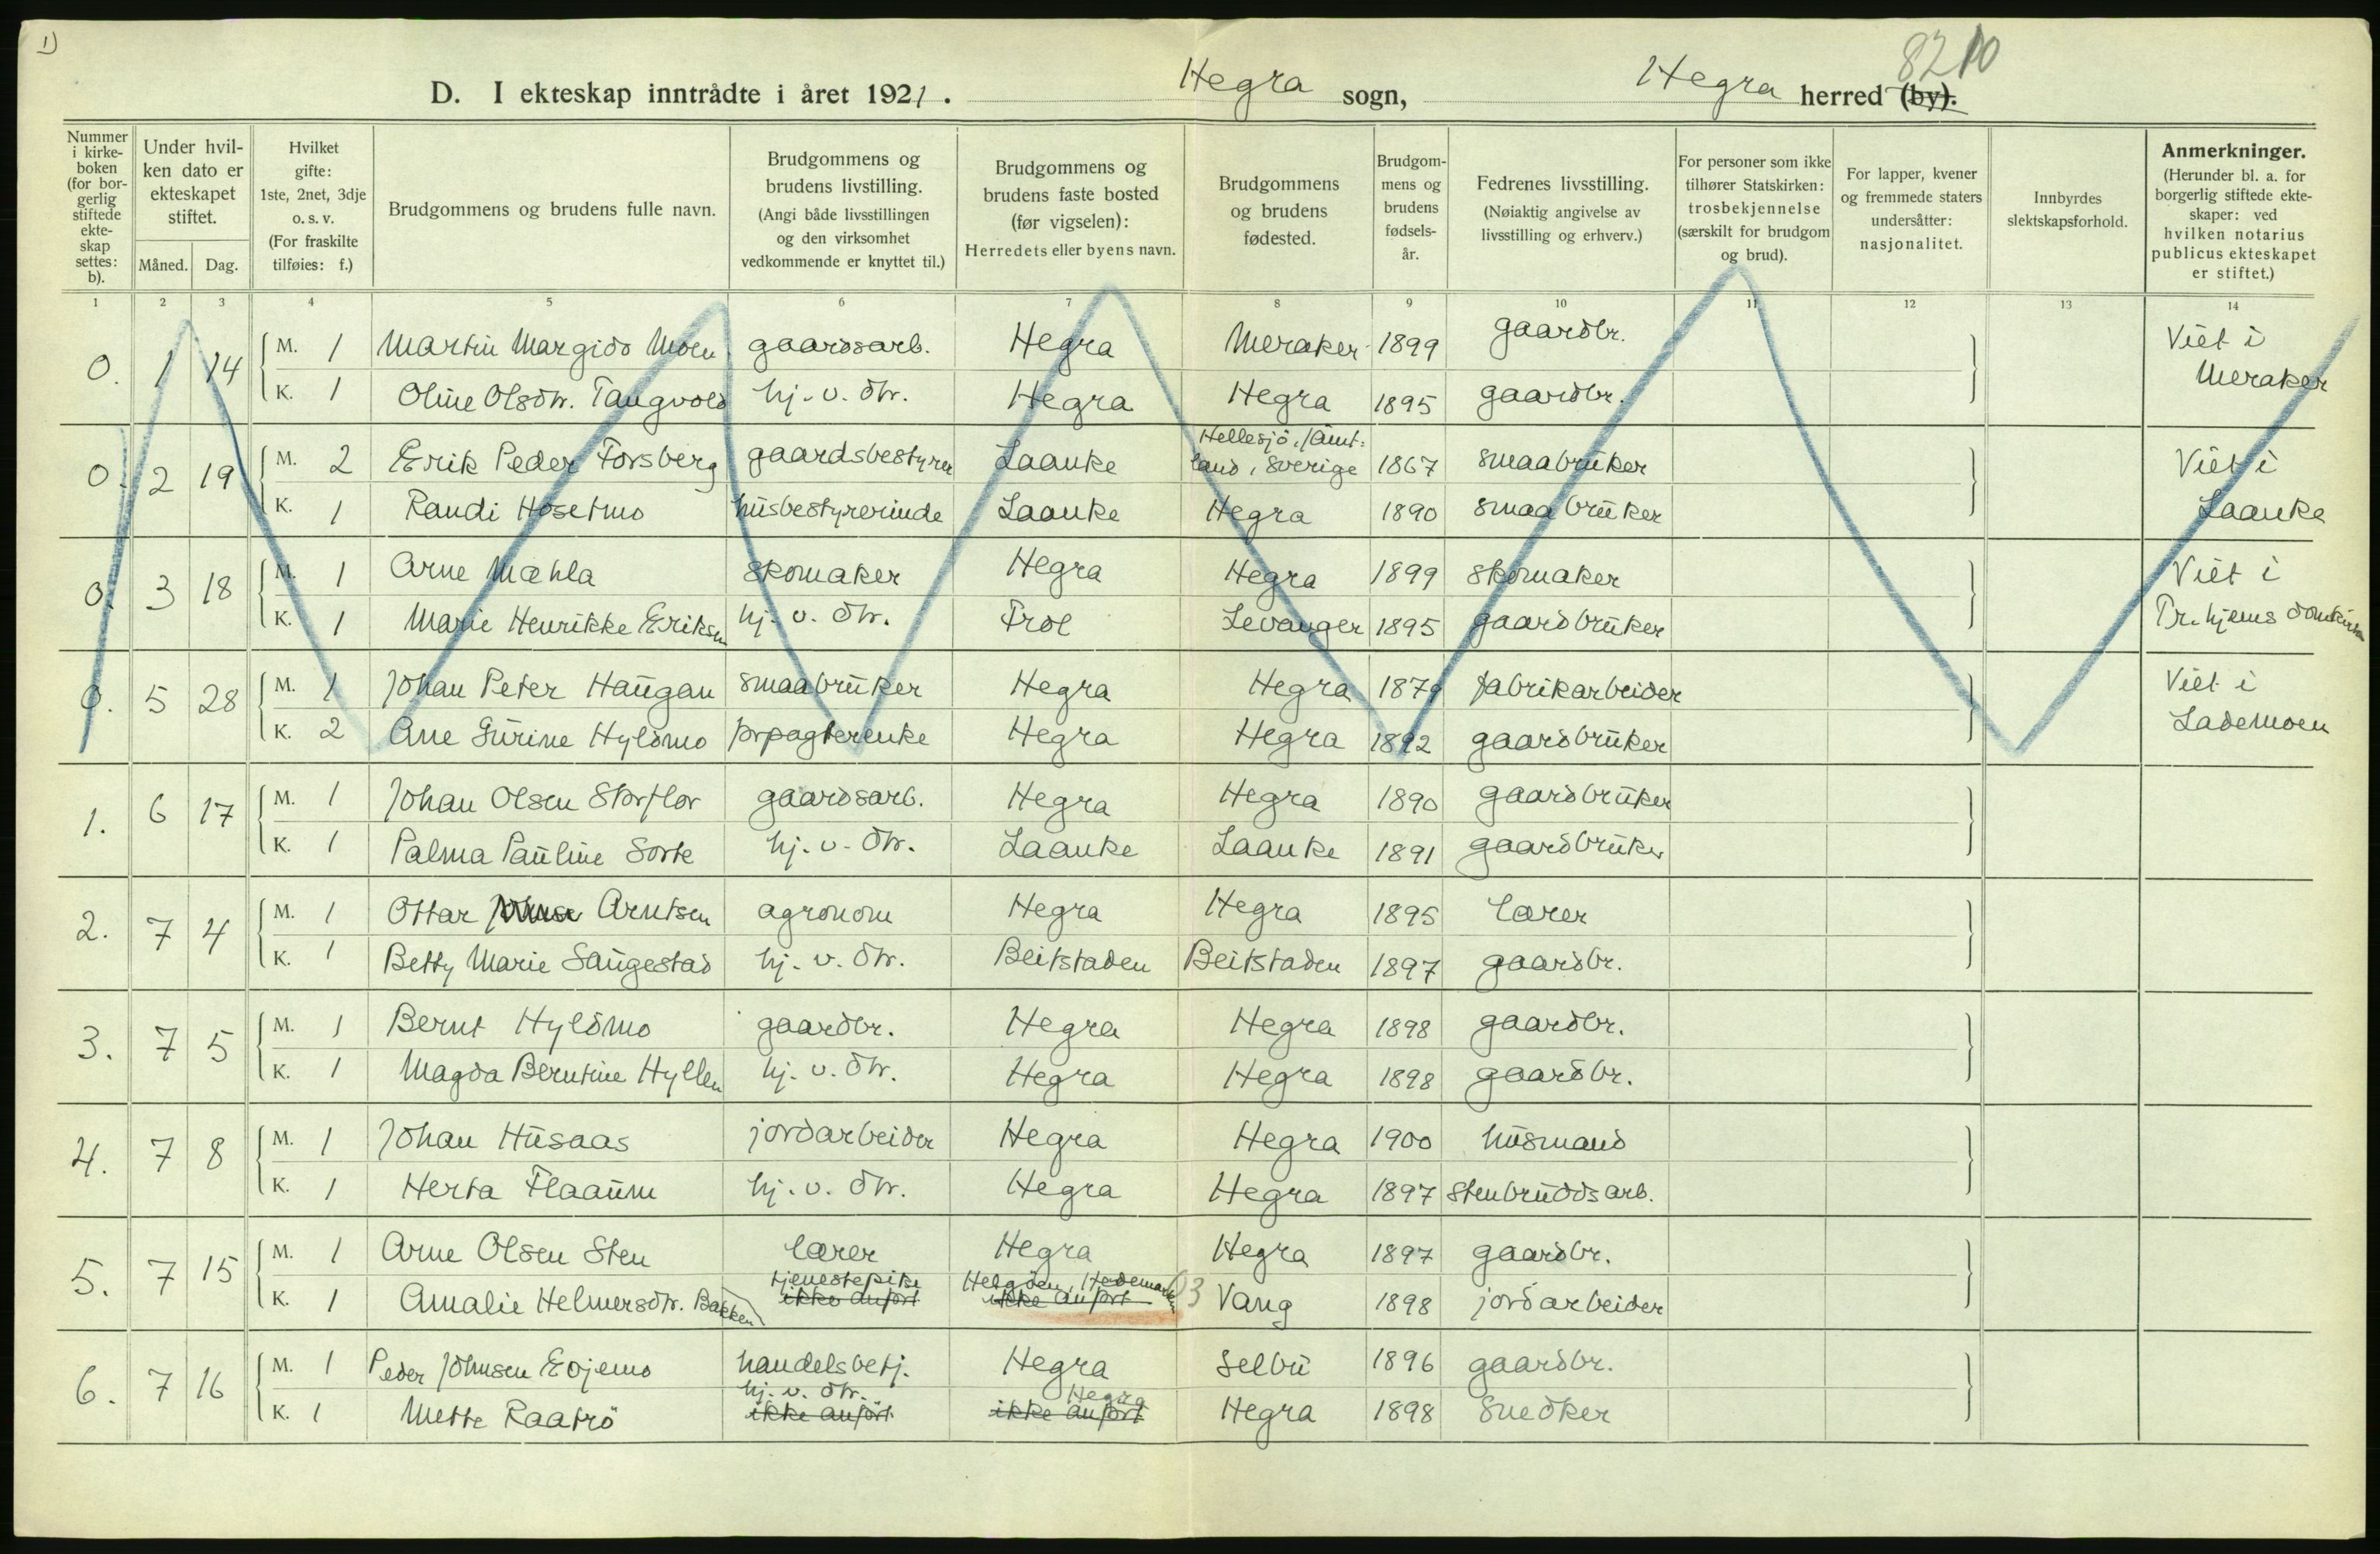 1)
8210
D. I ekteskap inntrådte i året 1921. Hegra sogn, Hegra herred (by).
Nummer i kirkeboken (for borgerlig stiftede ekteskap settes: b).
Under hvilken dato er ekteskapet stiftet.
Måned. Dag.
Hvilket gifte: 1ste, 2net, 3dje o. s. v. (For fraskilte tilføies: f.)
Brudgommens og brudens fulle navn.
Brudgommens og brudens livstilling. (Angi både livsstillingen og den virksomhet vedkommende er knyttet til.)
Brudgommens og brudens faste bosted (før vigselen): Herredets eller byens navn.
Brudgommens og brudens fødested.
Brudgommens og brudens fødselsår.
Fedrenes livsstilling. (Nøiaktig angivelse av livsstilling og erhverv.)
For personer som ikke tilhører Statskirken: trosbekjennelse (særskilt for brudgom og brud).
For lapper, kvener og fremmede staters undersåtter: nasjonalitet.
Innbyrdes slektskapsforhold.
Anmerkninger. (Herunder bl. a. for borgerlig stiftede ekteskaper: ved hvilken notarius publicus ekteskapet er stiftet.)
1 2 3 4 5 6 7 8 9 10 11 12 13 14
0. 1 14 M. 1 Martin Margido Moen gaardsarb. Hegra Meraker 1899 gaardbr. Viet i
K. 1 Oline Olsdtr. Tangvold hj. v. dtr. Hegra Hegra 1895 gaardbr. Meraker
0. 2 19 M. 2 Erik Peder Forsberg gaardsbestyrer Laanke Hellesjö, Jämtland, Sverige 1867 smaabruker Viet i
K. 1 Randi Hosetmo husbestyrerinde Laanke Hegra 1890 smaabruker Laanke
0. 3 18 M. 1 Arne Mæhla skomaker Hegra Hegra 1899 skomaker Viet i
K. 1 Marie Henrikke Eriksen hj. v. dtr. Frol Levanger 1895 gaardbruker Tr.hjems domkirke
0. 5 28 M. 1 Johan Peter Haugan smaabruker Hegra Hegra 1879 fabrikarbeider Viet i
K. 2 Ane Gurine Hyldmo forpagterenke Hegra Hegra 1892 gaardbruker Lademoen
1. 6 17 M. 1 Johan Olsen Storflor gaardsarb. Hegra Hegra 1890 gaardbruker
K. 1 Palma Pauline Sorte hj. v. dtr. Laanke Laanke 1891 gaardbruker
2. 7 4 M. 1 Ottar Arntsen agronom Hegra Hegra 1895 lærer
K. 1 Betty Marie Saugestad hj. v. dtr. Beitstaden Beitstaden 1897 gaardbr.
3. 7 5 M. 1 Bernt Hyldmo gaardbr. Hegra Hegra 1898 gaardbr.
K. 1 Magda Berntine Hyllen hj. v. dtr. Hegra Hegra 1898 gaardbr.
4. 7 8 M. 1 Johan Husaas jordarbeider Hegra Hegra 1900 husmand
K. 1 Herta Flaaum hj. v. dtr. Hegra Hegra 1897 stenbruddsarb.
5. 7 15 M. 1 Arne Olsen Sten lærer Hegra Hegra 1897 gaardbr.
tjenestepike Helgöen, Hedemarken
K. 1 Amalie Helmersdtr. Bakken ikke anført ikke anført 03 Vang 1898 jordarbeider
6. 7 16 M. 1 Peder Johnsen Evjemo handelsbetj. Hegra Selbu 1896 gaardbr.
hj. v. dtr. Hegra
K. 1 Mette Raatrö ikke anført ikke anført Hegra 1898 Snedker